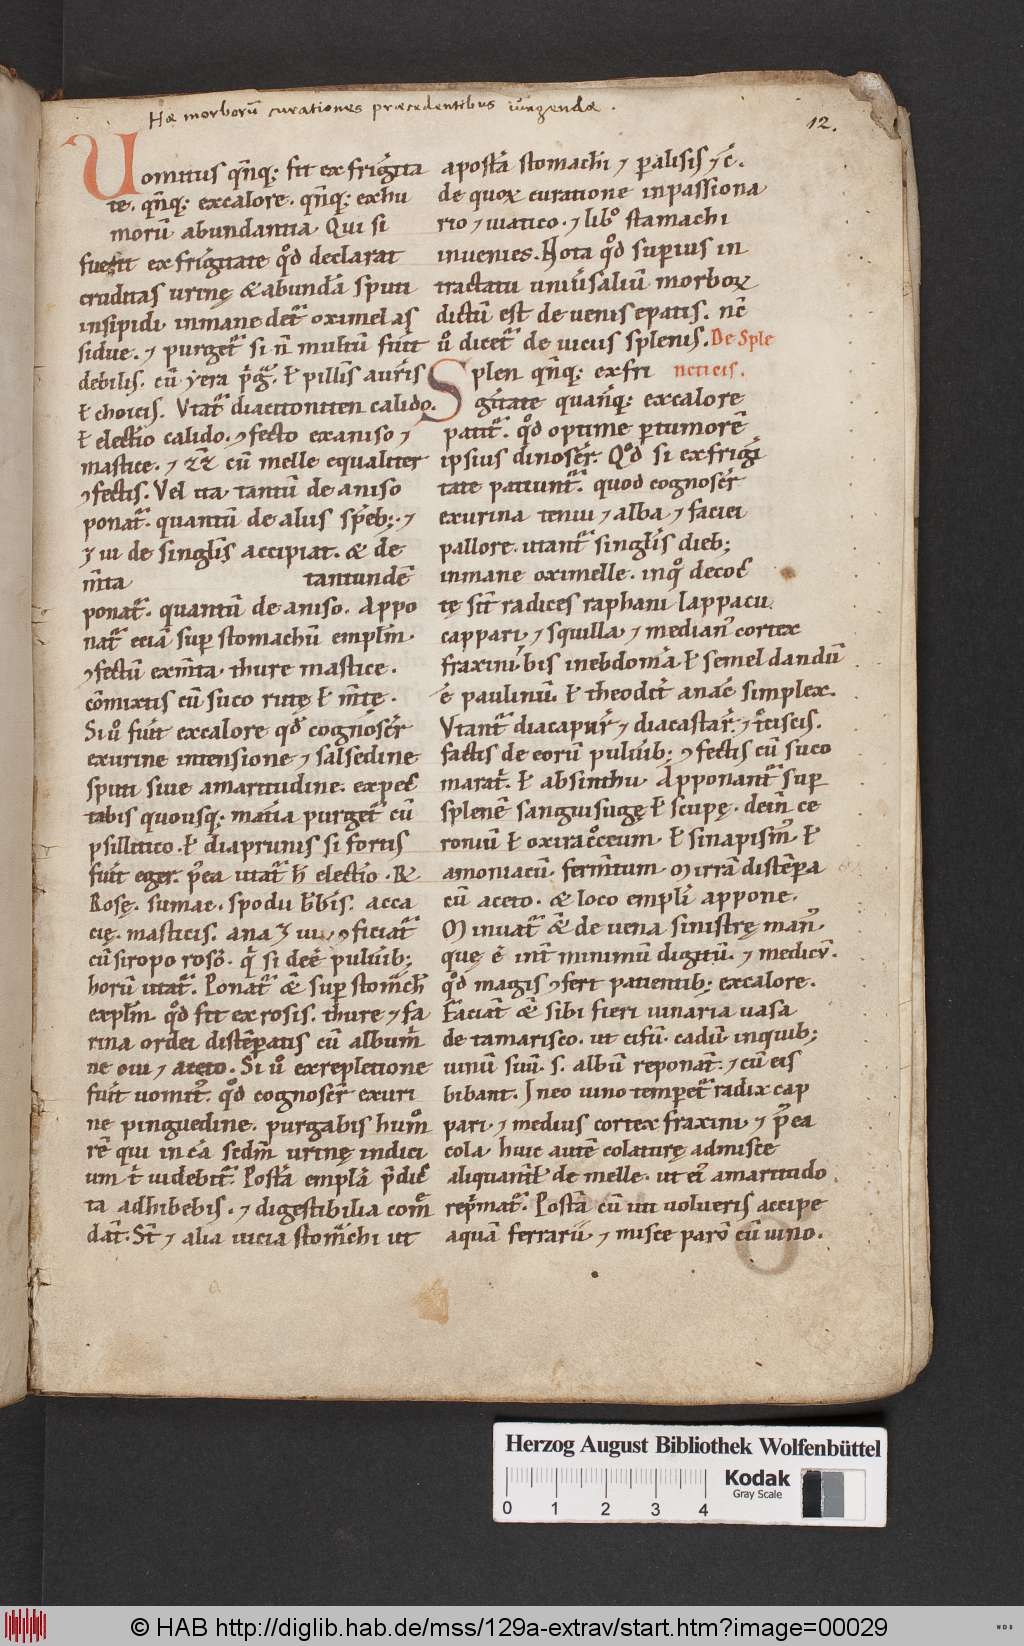 Hæ morborū curationes præcedentibus iūngendæ.
12.
Uomitus qn̄q; fit ex frigita
te. qn̄q; ex calore. qn̄q; ex hu
morū abundantia Qui si
fuerit ex frigitate qd̊ declarat
cruditas urinę & abundā sputi
insipidi in mane det̃ oximel aſ
sidue. ⁊ purget̃ si n̄ multū fuit
debilis. cū yera p̄gᷓ. ł pillis aur̄is
ł choicis. Vtat̃ diacitoniten calido.
ł electio calido. ꝯfecto ex aniso ⁊
mastice. ⁊ zz cū melle equaliter
ꝯfectis. Vel ita tantū de aniso
ponat̃. quantū de aliis sp̄eb;. ⁊
ʒ iii de singlis̄ accipiat. & de
m̄ta tantundē
ponat̃. quantū de aniso. Appo
nat̃ eciā sup stomachū emplm̄
ꝯfectū ex m̄ta thure mastice.
cōmixtis cū suco rutę ł m̄tę.
Si ů fuit ex calore qd̊ cognosc̄r
ex urine intensione ⁊ salsedine
sputi siue amaritudine. expec̄
tabis quousq; matia purget̃ cū
psillitico. ł diaprunis si fortis
fuit eger. p̊ea utat̃ h̄ electio. R
Rosę. sumac. spodii b̄bis̄. acca
cię. masticis. ana ʒ iii. ꝯficiat̃
cū siropo rosō. q̄ si deē puluib;
horū utat̃. Ponat̃ & sup stom̄ch̄
explm̄ qd̊ fit ex rosis. thure ⁊ fa
rina ordei distēpatis cū album̄
ne oui ⁊ aceto. Si ů ex repletione
fuit uomit᷒. qd̊ cognosc̄r ex uri
ne pinguedine. purgabis humo
rē qui in ea sedm̄ urinę indici
um t̄ uidebit̃. Postā emplā p̄dic̄
ta adhibebis. ⁊ digestibilia com̄
dat̄. St̄ ⁊ alia uicia stom̄chi ut
apostā stomachi ⁊ paralisis ⁊ c̄.
de quoꝝ curatione in passiona
rio ⁊ uiatico. ⁊ lib̊ stamachi
inuenies. Nota qd̊ superius in
tractatu uniūsaliū morboꝝ
dictū est de uenis epatis. nc̄
ů dicet̃ de uiciis splenis. De Sple
neticis.
Splen qn̄q; ex fri
gitate quan̄q; ex calore
patit̃. qd̊ optime p tumorē
ipsius dinosc̄r. Qd̊ si ex frigi
tate patiunt̃. quod cognosc̄r
ex urina tenui ⁊ alba ⁊ faciei
pallore. utant̃ singlis̄ dieb;
in mane oximelle. in q̊ decoc̄
tę sit̄ radices raphani lappacii
cappari ⁊ squilla ⁊ median᷒ cortex
fraxini bis in ebdom̄a ł semel dandū
ē paulinū. ł theodit̄ anac̄ simplex.
Vtant̃ diacapur̄ ⁊ diacastar̄. ⁊ t̄ciscis.
factis de eorū puluib; ꝯfectis cū suco
marat̄. ł absinthii Apponant̃ sup
splenē sanguisugę ł scupę. dein̄ ce
roniū ł oxirac̊ceum. ł sinapism᷒ ł
amoniacū ferm̄tum mirrā distēpa
cū aceto. & loco empli appone.
Minuat̃ & de uena sinistrę man᷒
quę ē int̄ minimū digitū. ⁊ medicū.
qd̊ magis ꝯfert patientib; ex calore.
Faciat̄ & sibi fieri uinaria uasa
de tamarisco. ut cifū. cadū in quib;
uinū suū. s. albū reponat̄. ⁊ cū eis
bibant. In eo uino tempet̃ radix cap
pari ⁊ medius cortex fraxini ⁊ p̊ea
cola huic autē colaturę admisce
aliquant̄ł de melle. ut ei᷒ amaritudo
rep̄mat̃. Postā cū uti uolueris accipe
aquā ferrarii ⁊ misce parū cū uino.
Herzog August Bibliothek Wolfenbüttel
Kodak
Gray Scale
0 1 2 3 4
© HAB http://diglib.hab.de/mss/129a-extrav/start.htm?image=00029